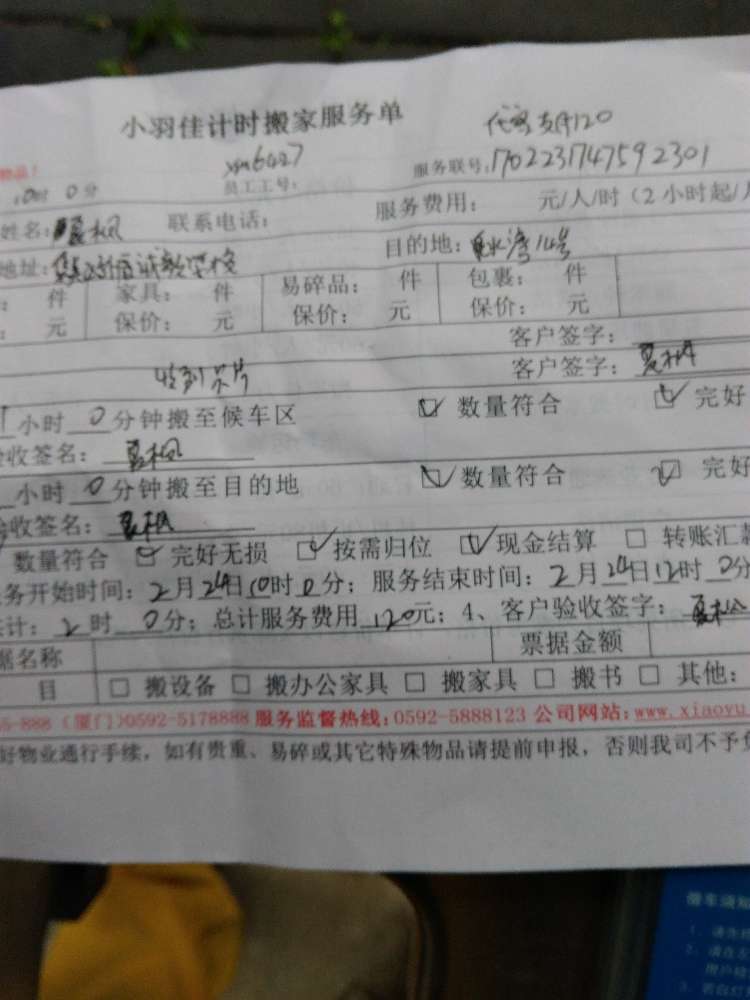 小羽佳计时搬家服务单
支付120
物品！
xm6427
员工工号：
服务联号：1702231747592301
10时 0分
服务费用： 元/人/时（2小时起/
姓名：夏枫 联系电话：
目的地： 14号
地址：
件 家具： 件 易碎品： 件 包裹： 件
元 保价： 元 保价： 元 保价： 元
客户签字：
客户签字：夏枫
小时 0 分钟搬至候车区 数量符合 完好
收签名：夏枫
小时 0 分钟搬至目的地 数量符合 完好
收签名：夏枫
数量符合 完好无损 按需归位 现金结算 转账汇款
务开始时间：2月24日10时0分；服务结束时间：2月24日12时0分
计：2时0分；总计服务费用120元；4、客户验收签字：夏枫
据名称 票据金额
目 □ 搬设备 □ 搬办公家具 □ 搬家具 □ 搬书 □ 其他：
5-888（厦门）0592-5178888 服务监督热线：0592-5888123 公司网站：www.xiaoyu
好物业通行手续，如有贵重、易碎或其它特殊物品请提前申报，否则我司不予负
停车须知